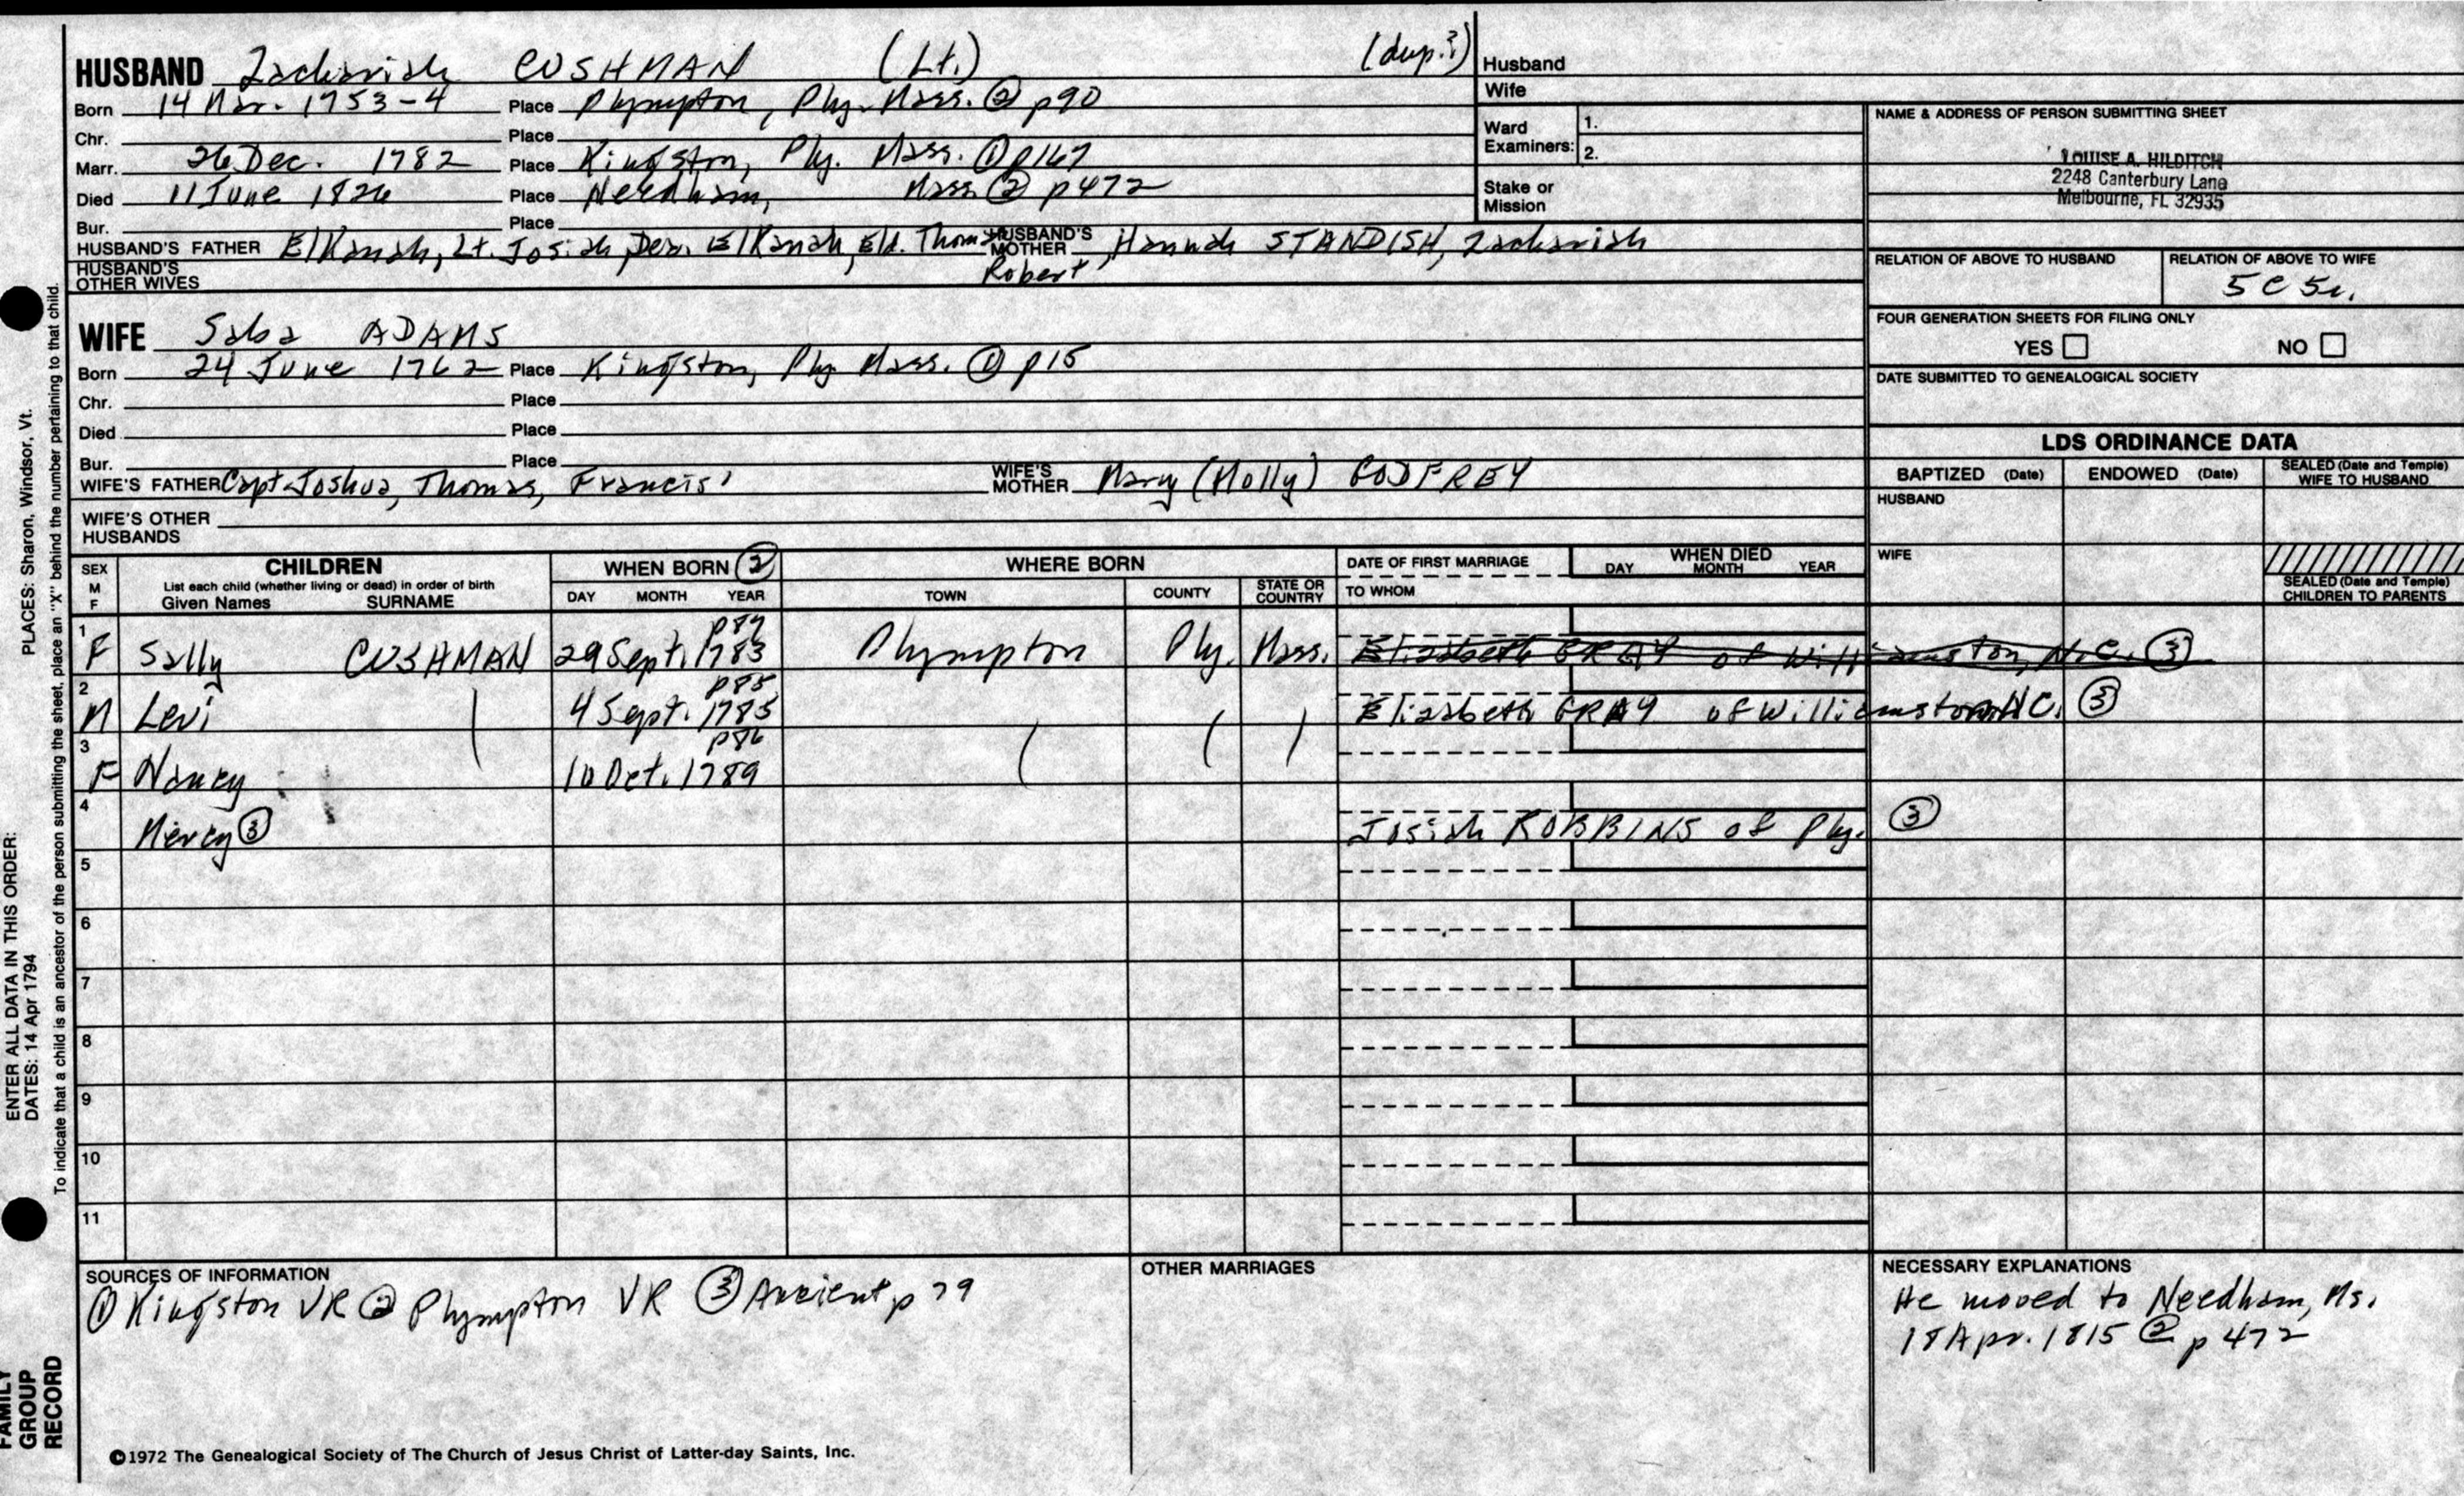 HUSBAND Zachariah CUSHMAN (Lt.) (dup.?)
Born 14 Mar. 1753-4 Place Plympton, Ply. Mass. ② p90
Chr. Place
Marr. 26 Dec. 1782 Place Kingston, Ply. Mass. ① p167
Died 11 June 1826 Place Needham, Mass ② p472
Bur. Place
HUSBAND'S FATHER Elkanah, Lt. Josiah, Dea. Elkanah, Eld. Thomas HUSBAND'S MOTHER Hannah STANDISH, Zachariah
Robert
HUSBAND'S OTHER WIVES
Husband
Wife
Ward Examiners: 1.
2.
Stake or Mission
NAME & ADDRESS OF PERSON SUBMITTING SHEET
LOUISE A. HILDITCH
2248 Canterbury Lane
Melbourne, FL 32935
RELATION OF ABOVE TO HUSBAND RELATION OF ABOVE TO WIFE
5 C 5r.
FOUR GENERATION SHEETS FOR FILING ONLY
YES NO
DATE SUBMITTED TO GENEALOGICAL SOCIETY
WIFE Saba ADAMS
Born 24 June 1762 Place Kingston, Ply Mass. ① p15
Chr. Place
Died Place
Bur. Place
WIFE'S FATHER Capt. Joshua, Thomas, Francis' WIFE'S MOTHER Mary (Molly) GODFREY
WIFE'S OTHER HUSBANDS
LDS ORDINANCE DATA
BAPTIZED (Date) ENDOWED (Date) SEALED (Date and Temple) WIFE TO HUSBAND
HUSBAND
WIFE
SEALED (Date and Temple) CHILDREN TO PARENTS
SEX M F CHILDREN
List each child (whether living or dead) in order of birth
Given Names SURNAME
WHEN BORN ② DAY MONTH YEAR
WHERE BORN TOWN COUNTY STATE OR COUNTRY
DATE OF FIRST MARRIAGE TO WHOM
WHEN DIED DAY MONTH YEAR
p87
1 F Sally CUSHMAN 29 Sept. 1783 Plympton Ply. Mass. Elizabeth GRAY of Williamston, N.C. ③
p85
2 M Levi 4 Sept. 1785 Elizabeth GRAY of Williamston NC. ③
p86
3 F Nancy 10 Oct. 1789
4 Mercy ③ Josiah ROBBINS of Ply. ③
5
6
7
8
9
10
11
SOURCES OF INFORMATION
① Kingston VR ② Plympton VR ③ Ancient p 79
OTHER MARRIAGES
NECESSARY EXPLANATIONS
He moved to Needham, Ms.
18 Apr. 1815 ② p 472
©1972 The Genealogical Society of The Church of Jesus Christ of Latter-day Saints, Inc.
FAMILY GROUP RECORD
ENTER ALL DATA IN THIS ORDER:
DATES: 14 Apr 1794
PLACES: Sharon, Windsor, Vt.
To indicate that a child is an ancestor of the person submitting the sheet, place an "X" behind the number pertaining to that child.